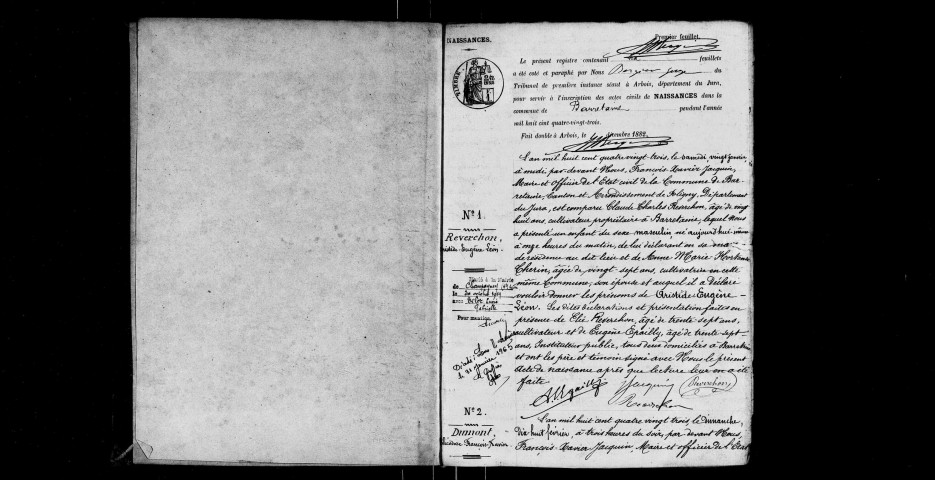 NAISSANCES.
Premier feuillet.
Le présent registre contenant feuillets
a été coté et paraphé par Nous du
Tribunal de première instance séant à Arbois, département du Jura,
pour servir à l'inscription des actes civils de NAISSANCES dans la
commune de Barretaine pendant l'année
mil huit cent quatre-vingt-trois.
Fait double à Arbois, le décembre 1882.
TIMBRE
N° 1.
Reverchon,
Aristide Eugène Léon.
L'an mil huit cent quatre vingt-trois, le samedi, vingt janvier,
à midi par-devant Nous, François Xavier Jacquin,
Maire et officier de l'Etat civil de la Commune de Bar-
retaine, Canton et Arrondissement de Poligny, Département
du Jura, est comparu Claude Charles Reverchon, âgé de vingt
huit ans, cultivateur propriétaire à Barretaine, lequel Nous
a présenté un enfant du sexe masculin né aujourd'hui même
à onze heures du matin, de lui déclarant en sa mai-
de résidence au dit lieu et de Anne Marie Hortense
Cherin, âgée de vingt sept ans, cultivatrice en cette
même Commune, son épouse et auquel il a déclaré
vouloir donner les prénoms de Aristide-Eugène-
Léon. Les dites déclarations et présentation faites en
présence de Elie Reverchon, âgé de trente sept ans,
cultivateur et de Eugène Epailly, âgé de trente-sept
ans, Instituteur public, tous deux domiciliés à Barretaine
et ont les père et témoins signé avec Nous le présent
acte de naissance après que lecture leur en a été
faite
Epailly Jacquin Reverchon
Reverchon
Marié à la Mairie
de Champagney
le
avec
Pour mention
Décédé
le 21 janvier 1965
N° 2.
Dumont,
François-Xavier.
L'an mil huit cent quatre vingt trois, le Dimanche,
dix huit février, à trois heures du soir, par devant Nous
François-Xavier Jacquin, Maire et officier de l'Etat